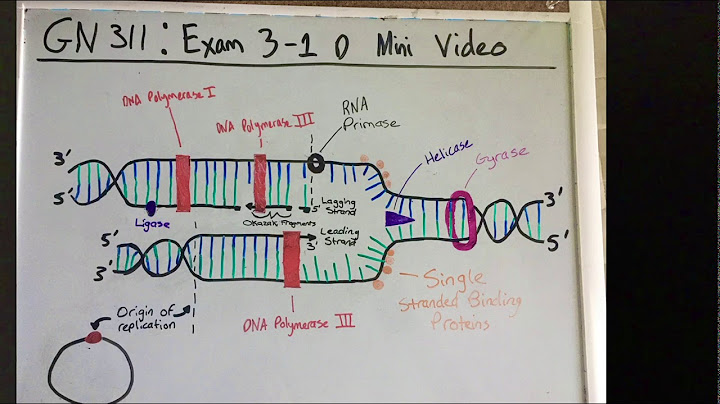 GN 311: Exam 3-1 D Mini Video
DNA Polymerase I
DNA Polymerase III
RNA
Primase
Helicase
Gyrase
3'
5'
Ligase
Okazaki Fragments
5'
Lagging
Strand
3'
5'
5'
3'
3'
Leading
Strand
Origin of
replication
DNA Polymerase III
Single
Stranded Binding
Proteins